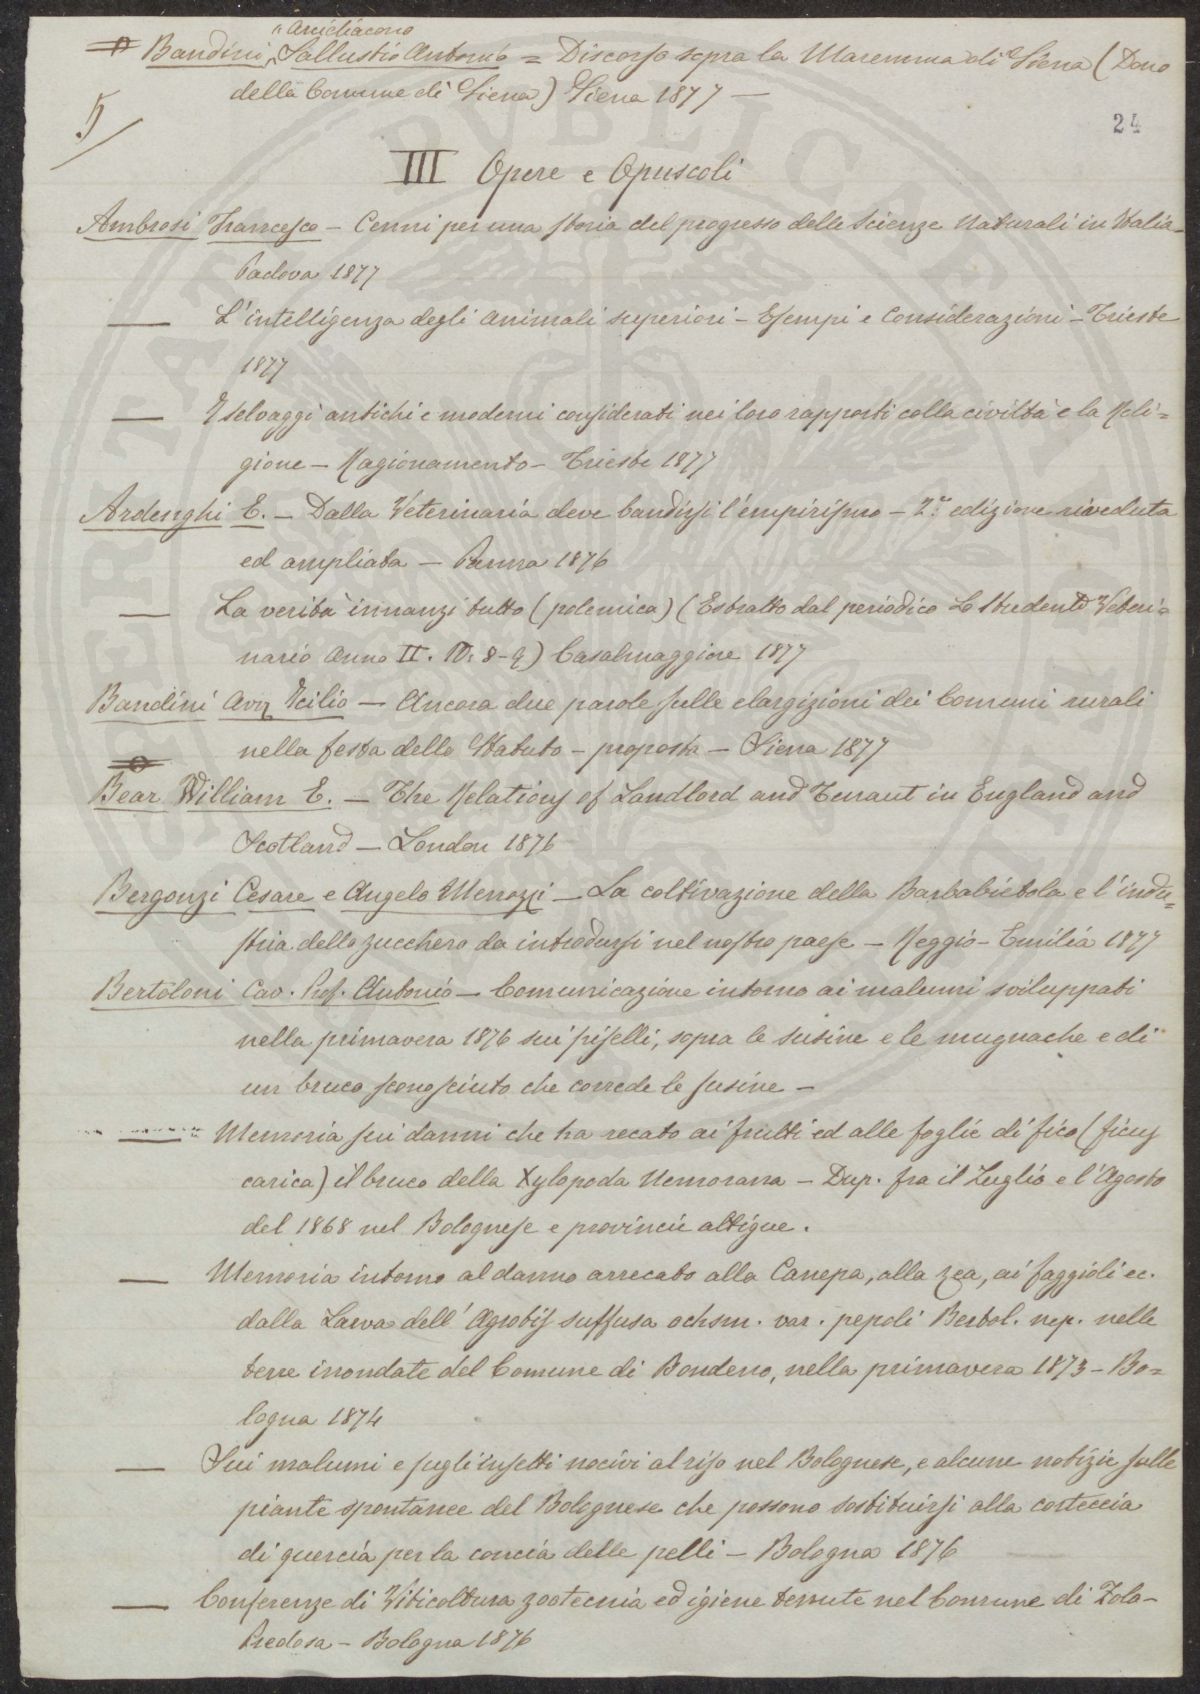 Arcidiacono
Bandini, Sallustio Antonio = Discorso sopra la Maremma di Siena (Dono
della Comune di Siena) Siena 1877 —
5/
24
III Opere e Opuscoli
Ambrosi Francesco — Cenni per una storia del progresso delle Scienze Naturali in Italia —
Padova 1877
— L'intelligenza degli animali superiori — Esempi e Considerazioni — Trieste
1877
— I selvaggi antichi e moderni considerati nei loro rapporti colla civiltà e la Reli=
gione — Ragionamento — Trieste 1877
Ardenghi E. — Dalla Veterinaria deve bandirsi l'empirismo — 2.a edizione riveduta
ed ampliata — Parma 1876
— La verità innanzi tutto (polemica) (Estratto dal periodico Lo Studente Veteri=
nario Anno II. N: 8-9) Casalmaggiore 1877
Bandini Avv Icilio — Ancora due parole sulle elargizioni dei Comuni rurali
nella festa dello Statuto — proposta — Siena 1877
Bear William E. — The Relations of Landlord and Tenant in England and
Scotland — London 1876
Bergonzi Cesare e Angelo Menozzi — La coltivazione della Barbabietola e l'indu=
stria dello zucchero da introdursi nel nostro paese — Reggio-Emilia 1877
Bertoloni Cav. Prof. Antonio — Comunicazione intorno ai malumi sviluppati
nella primavera 1876 sui piselli, sopra le susine e le mugnache e di
un bruco sconosciuto che corrode le susine —
— Memoria sui danni che ha recato ai frutti ed alle foglie di fico (ficus
carica) il bruco della Xylopoda Nemorana — Dup. fra il Luglio e l'Agosto
del 1868 nel Bolognese e provincie attigue.
— Memoria intorno al danno arrecato alla Canepa, alla zea, ai faggioli ec.
dalla Larva dell'Agrotis suffusa ochsm. var. pepoli Bertol. nep. nelle
terre inondate del Comune di Bondeno, nella primavera 1873 — Bo=
logna 1874
— Sui malumi e sugli insetti nocivi al riso nel Bolognese, e alcune notizie sulle
piante spontanee del Bolognese che possono sostituirsi alla corteccia
di quercia per la concia delle pelli — Bologna 1876
— Conferenze di Viticoltura zootecnia ed igiene tenute nel Comune di Zola-
Predosa — Bologna 1876